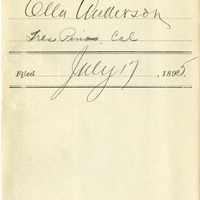 Ella Anderson
Tres Pinos, Cal
Filed July 17, 1895.